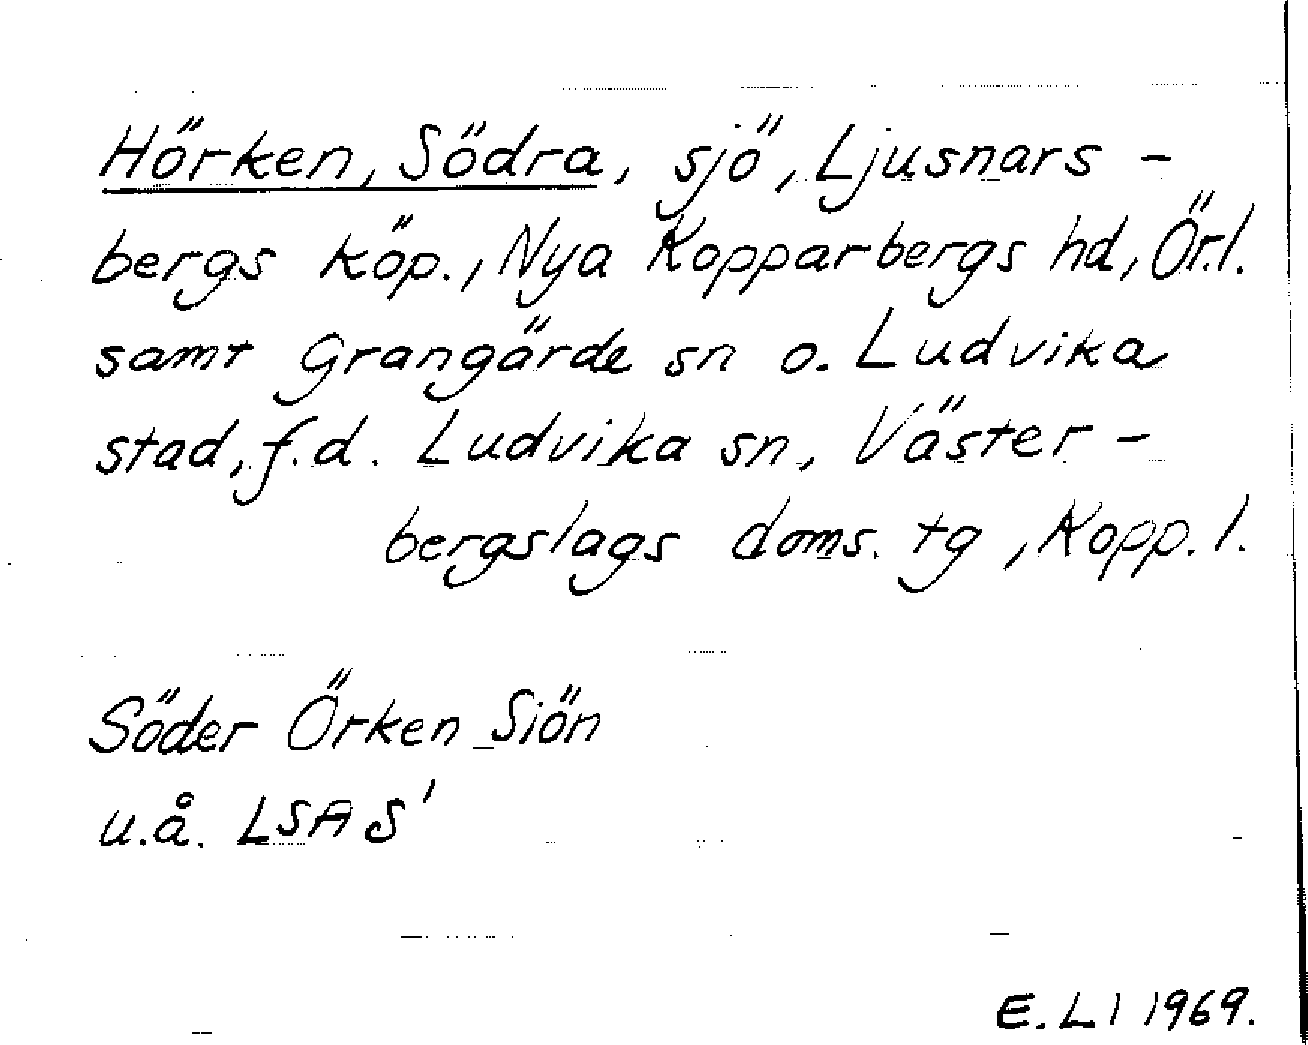 Hörken, Södra, sjö, Ljusnars-
bergs köp., Nya Kopparbergs hd, Ör.l.
samt Grangärde sn o. Ludvika
stad, f.d. Ludvika sn, Väster-
bergslags doms. tg, Kopp. l.
Söder Örken Siön
u.å. LSA S'
E. Ll 1969.